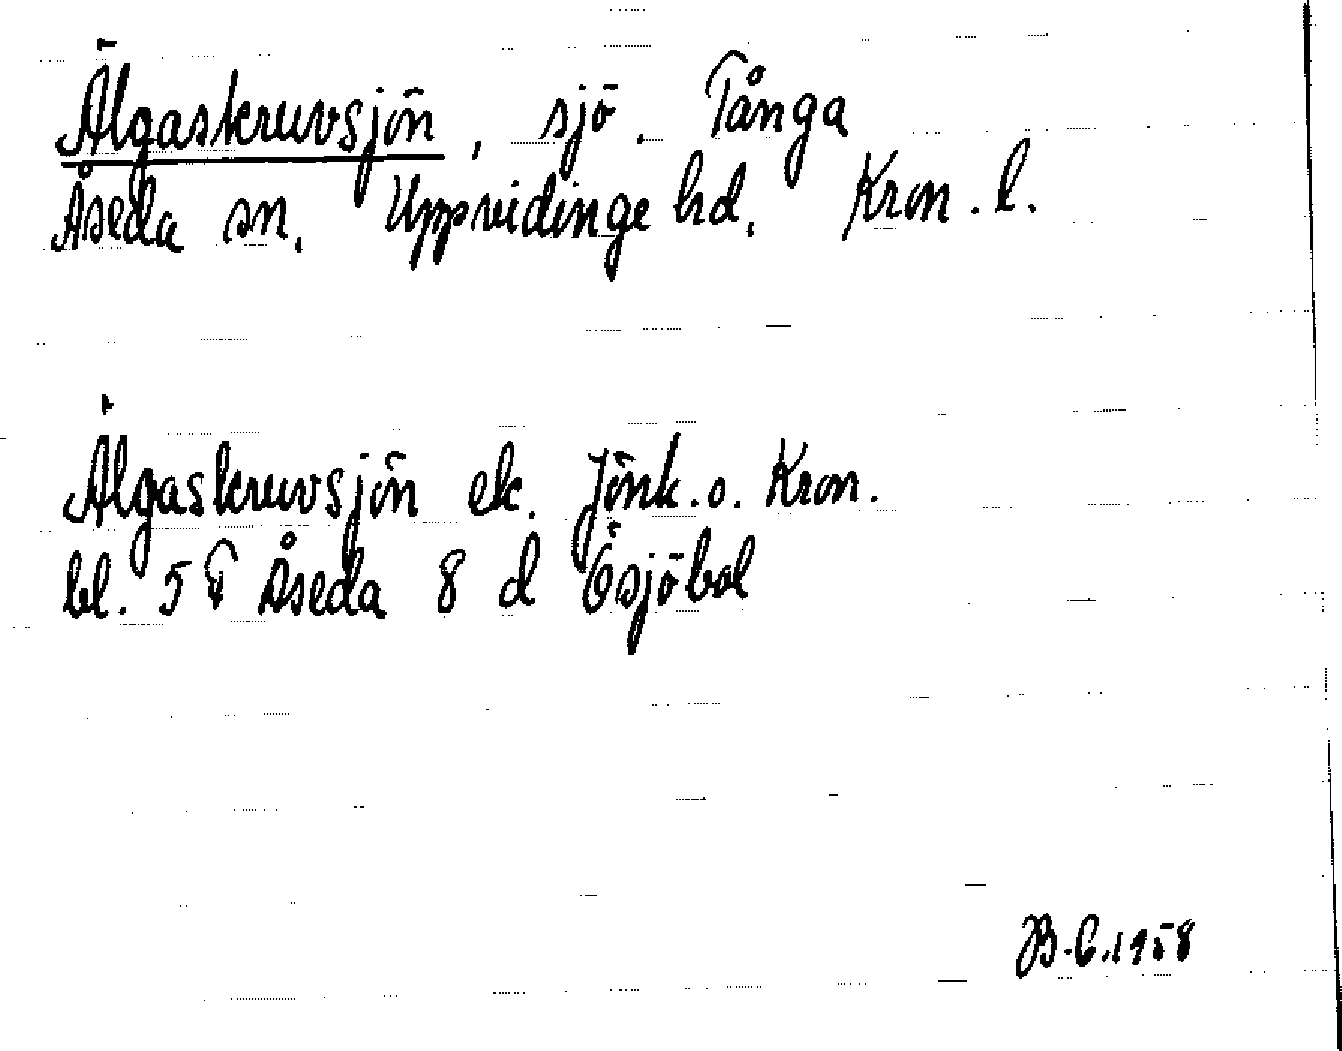 Älgaskruvsjön, sjö. Tånga
Åseda sn. Uppvidinge hd. Kron. l.
Älgaskruvsjön ek. Jönk. o. Kron.
bl. 5 F Åseda 8 d Ösjöbol
B.C. 1958